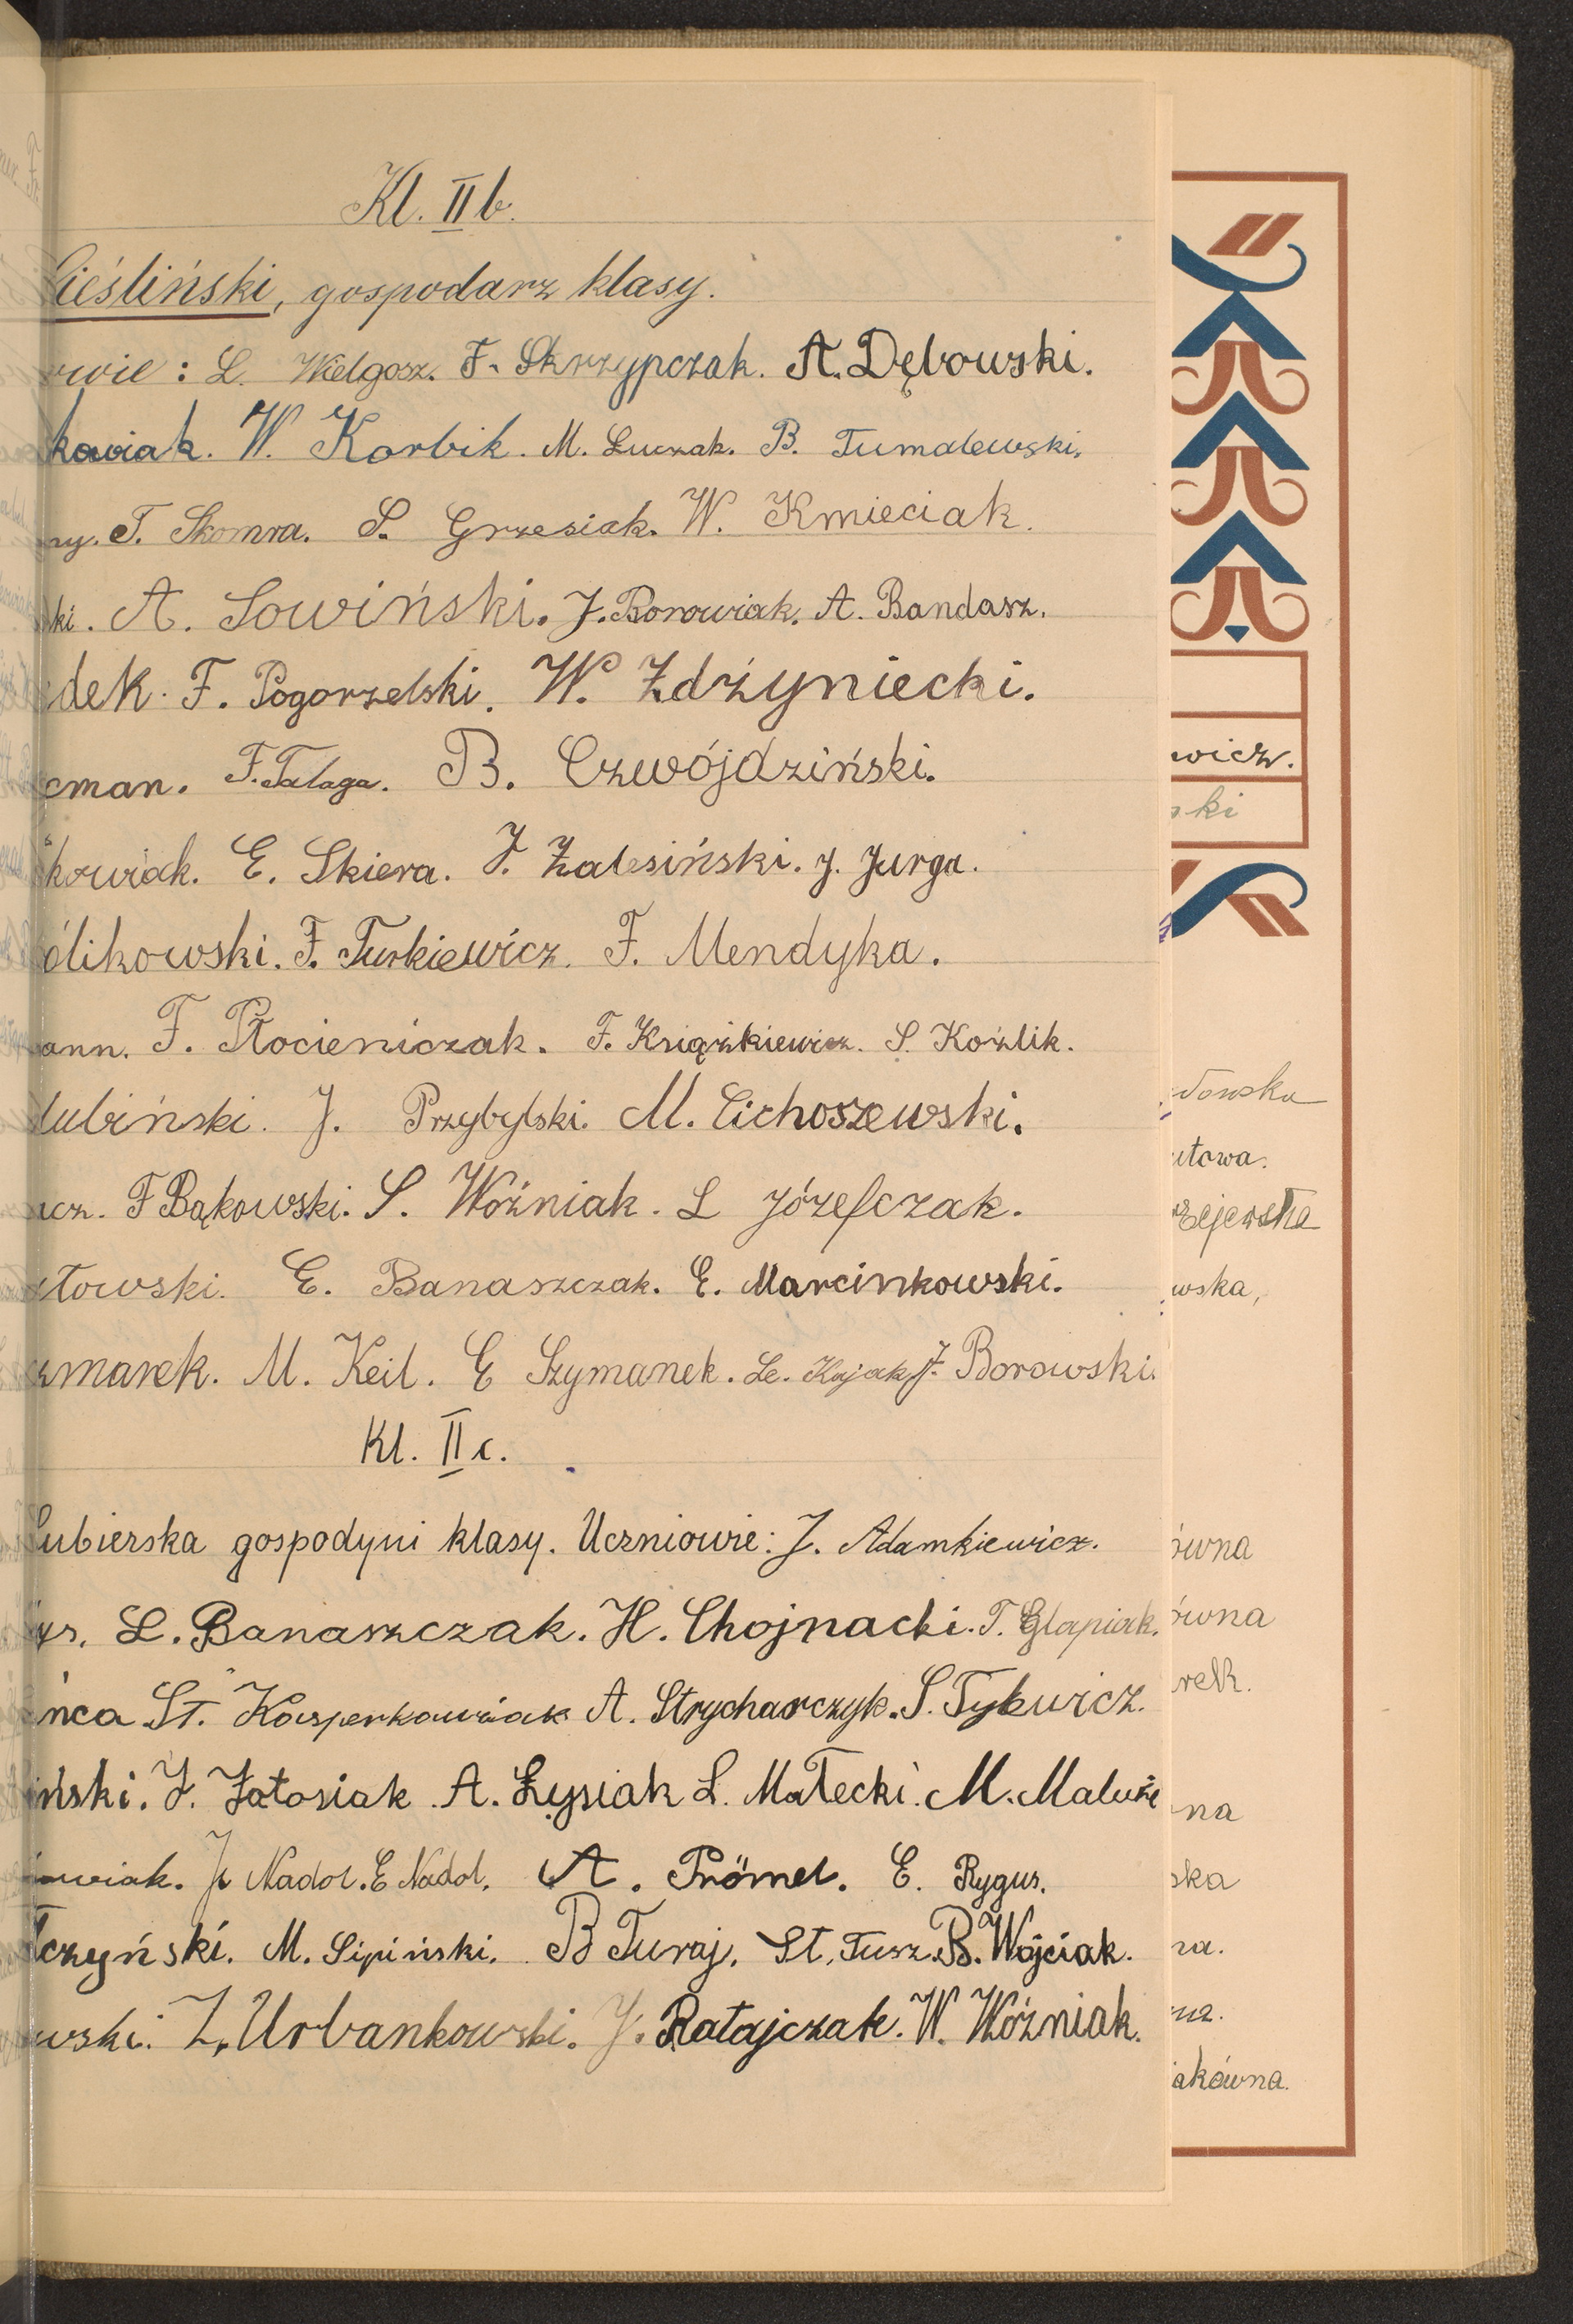 Kl. II b.
Cieśliński, gospodarz klasy.
owie: L. Wielgosz. F. Skrzypczak. A. Dębowski.
kowiak. W. Korbik. M. Łuczak. B. Tumalewski.
ny. T. Skomra. S. Grzesiak. W. Kmieciak.
ki. A. Sowiński. J. Borowiak. A. Bandasz.
dek. F. Pogorzelski. W. Zdżyniecki.
cman. F. Talaga. B. Czwójdziński.
kowiak. E. Skiera. J. Zalesiński. J. Jurga.
ólikowski. F. Turkiewicz. F. Mendyka.
ann. F. Płocieniczak. F. Książkiewicz. S. Koźlik.
lubiński. J. Przybylski. M. Cichoszewski.
icz. F Bąkowski. S. Woźniak. L Józefczak.
towski. E. Banaszczak. E. Marcinkowski.
zmarek. M. Keil. E Szymanek. Le. Kajak. J. Borowski.
Kl. II c.
Łubierska gospodyni klasy. Uczniowie: J. Adamkiewicz.
L. Banaszczak. H. Chojnacki. T. Glapiak.
ńca St. Kasperkowiak A. Strycharczyk. S. Tylewicz.
iński. J. Jatosiak. A. Łysiak L. Małecki. M. Maluże
owiak. J. Nadol. E Nadol. A. Prömel. E. Rygus.
czyński. M. Sipiński. B Turaj. St. Tusz. B. Wojciak.
wski. Z. Urbankowski. J. Ratajczak. W. Woźniak.
wicz.
ski
towska
utowa.
rzejewska
wska,
ówna
ówna
rek.
na
ska
ra.
akówna.